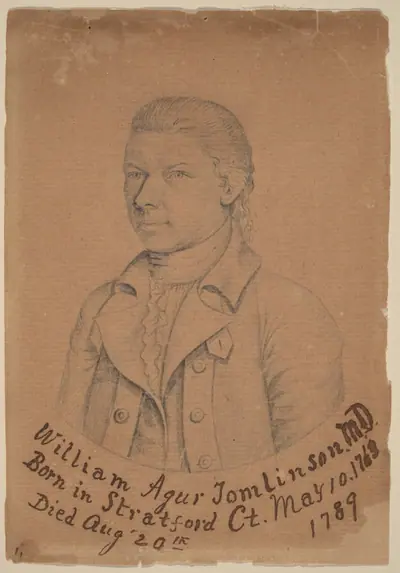 William Agur Tomlinson. M.D.
Born in Stratford Ct. May 10. 1763
Died Aug 20th 1789